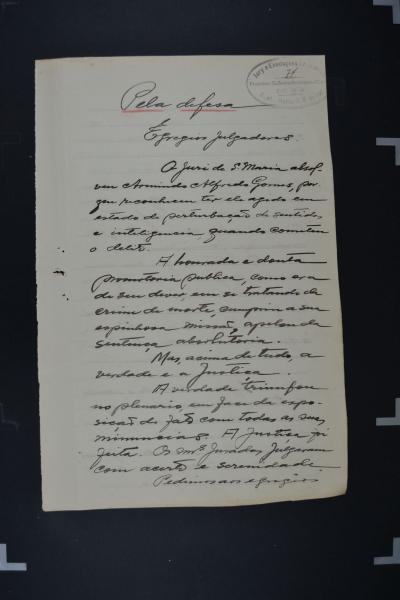 Jury e Execuções
71
Pela defesa
Egregios Julgadores.
O Juri de S. Maria absol-
veu Armindo Alfredo Gomes, por
que reconheceu ter ele agido em
estado de perturbação de sentidos
e inteligencia, quando cometeu
o delito.
A honrada e douta
promotoria publica, como era
de seu dever, em se tratando de
crime de morte, cumprindo a sua
espinhosa missão, apelou da
sentença absolutoria.
Mas, acima de tudo, a
verdade e a Justiça.
A verdade triumfou
no plenario, em face da expo-
sição do fato com todas as suas
minuncias. A Justiça foi
feita. Os snrs. Jurados Julgaram
com acerto e serenidade.
Pedimos aos egregios